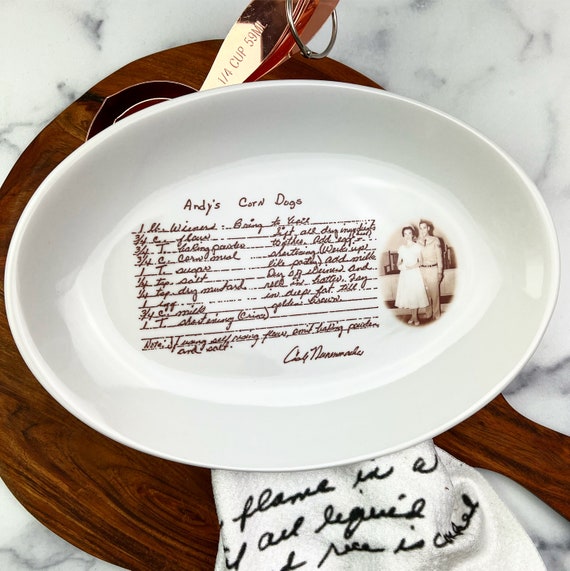 1/4 CUP 59ML
Andy's Corn Dogs
1 lb. Wieners .. Bring to boil
3/4 c. flour Sift all dry ingredients
1 T. baking powder together. Add egg &
3/4 c. corn meal shortening (Work up
1 T. sugar like pastry) add milk
1/4 tsp salt Dry off wieners and
1/4 tsp. dry mustard roll in batter. Fry
1 egg in deep fat till
3/4 c. milk golden brown.
1 T. shortening (Crisco)
Note: If using self rising flour, omit baking powder
and salt.
flame in a
all liquid
rice is